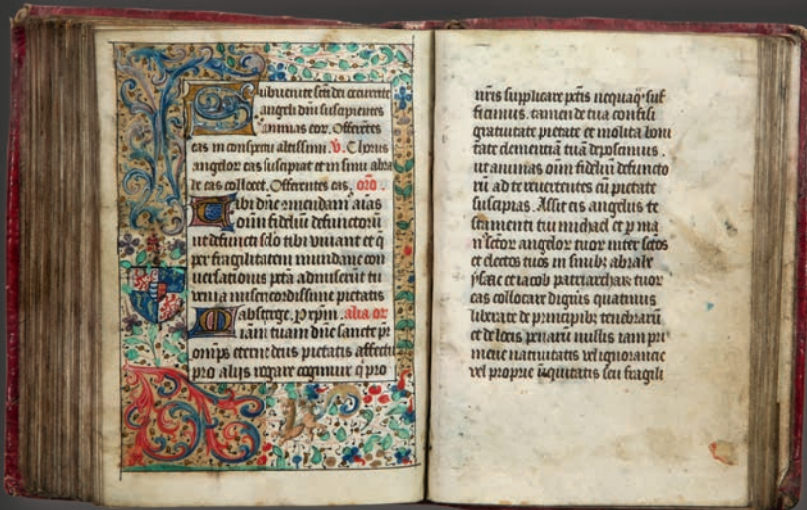 Subvenite sc̃ti dei occurrite
angeli dñi suscipientes
animas eor. Offerẽtes
eas in conspectu altissimi. V̉. Chorus
angelor eas suscipiat et in sinu abra
he eas collocet. Offerentes eas. oro.
Tibi dñe cõmendam' aĩas
oĩm fidelium defunctorũ
ut defuncti sclo tibi vivant et q̃
per fragilitatem mundane con
versationis pctã admiserũt tu
venia misericordissime pietatis
absterge. P xp̃m. alia or
iam tuam dñe sancte pr̃
omp̃s eterne deus pietatis affectu
pro alijs rogare cogimur q̓ pro
nr̃is supplicare pctĩs nequaq̃ suf
ficimus. tamen de tua confisi
gratuitate pietate et molita boni
tate clementiã tuã deposcimus.
ut animas oĩm fideliũ defuncto
rũ ad te revertentes cũ pietate
suscipias. Assit eis angelus te
stamenti tui michael et p̱ ma
n' sc̃tor angelor tuor inter sc̃tos
et electos tuos in sinibꝫ abrahe
ysaac et iacob patriarchar̃ tuor
eas collocare digñis quatinus
liberate de principibꝫ tenebrarũ
et de locis penarũ nullis iam pri
meve nativitatis vel ignorancie
vel proprie iñiquitatis seu fragili